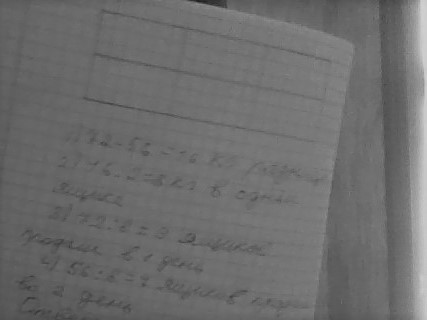 1) 72-56=16 кг
2) 16:2=8 кг в одном
ящике
3) 72:8=9 ящиков
продали в 1 день
4) 56:8=7 ящиков
во 2 день